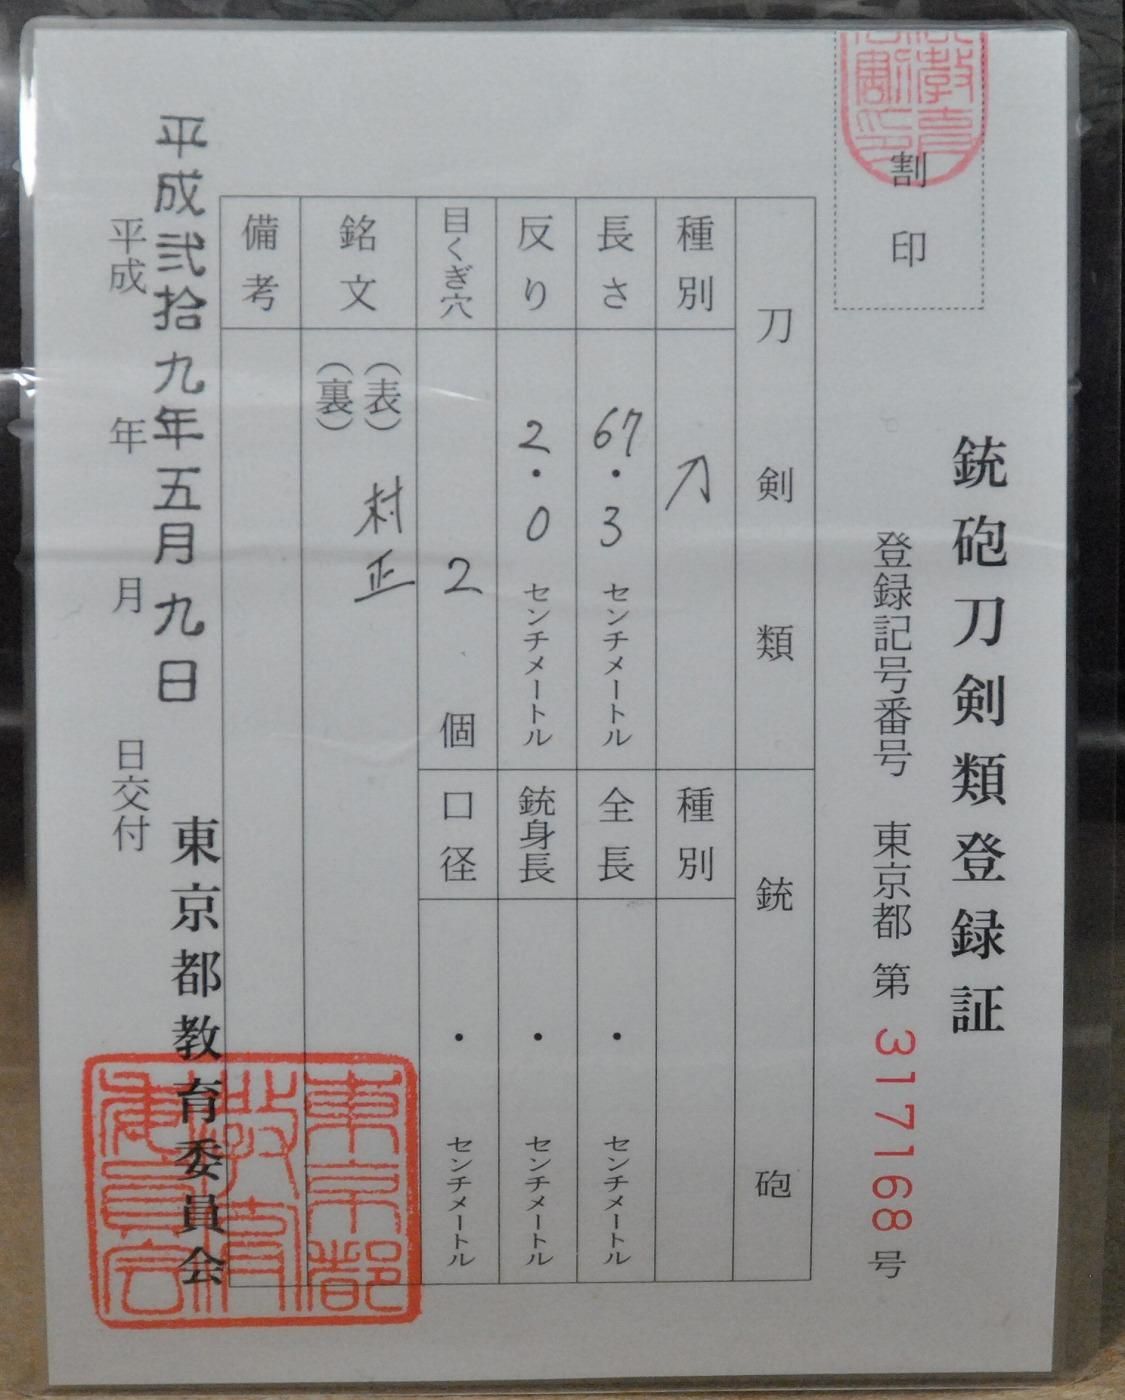 銃砲刀剣類登録証
割印
登録記号番号 東京都 第 317168 号
刀剣類
種別 刀
長さ 67.3 センチメートル
反り 2.0 センチメートル
目くぎ穴 2 個
銘文 (表) 村正
(裏)
備考
銃砲
種別
全長 ・ センチメートル
銃身長 ・ センチメートル
口径 ・ センチメートル
平成弐拾九年五月九日
平成 年 月 日交付
東京都教育委員会
東京都
教育
委員会